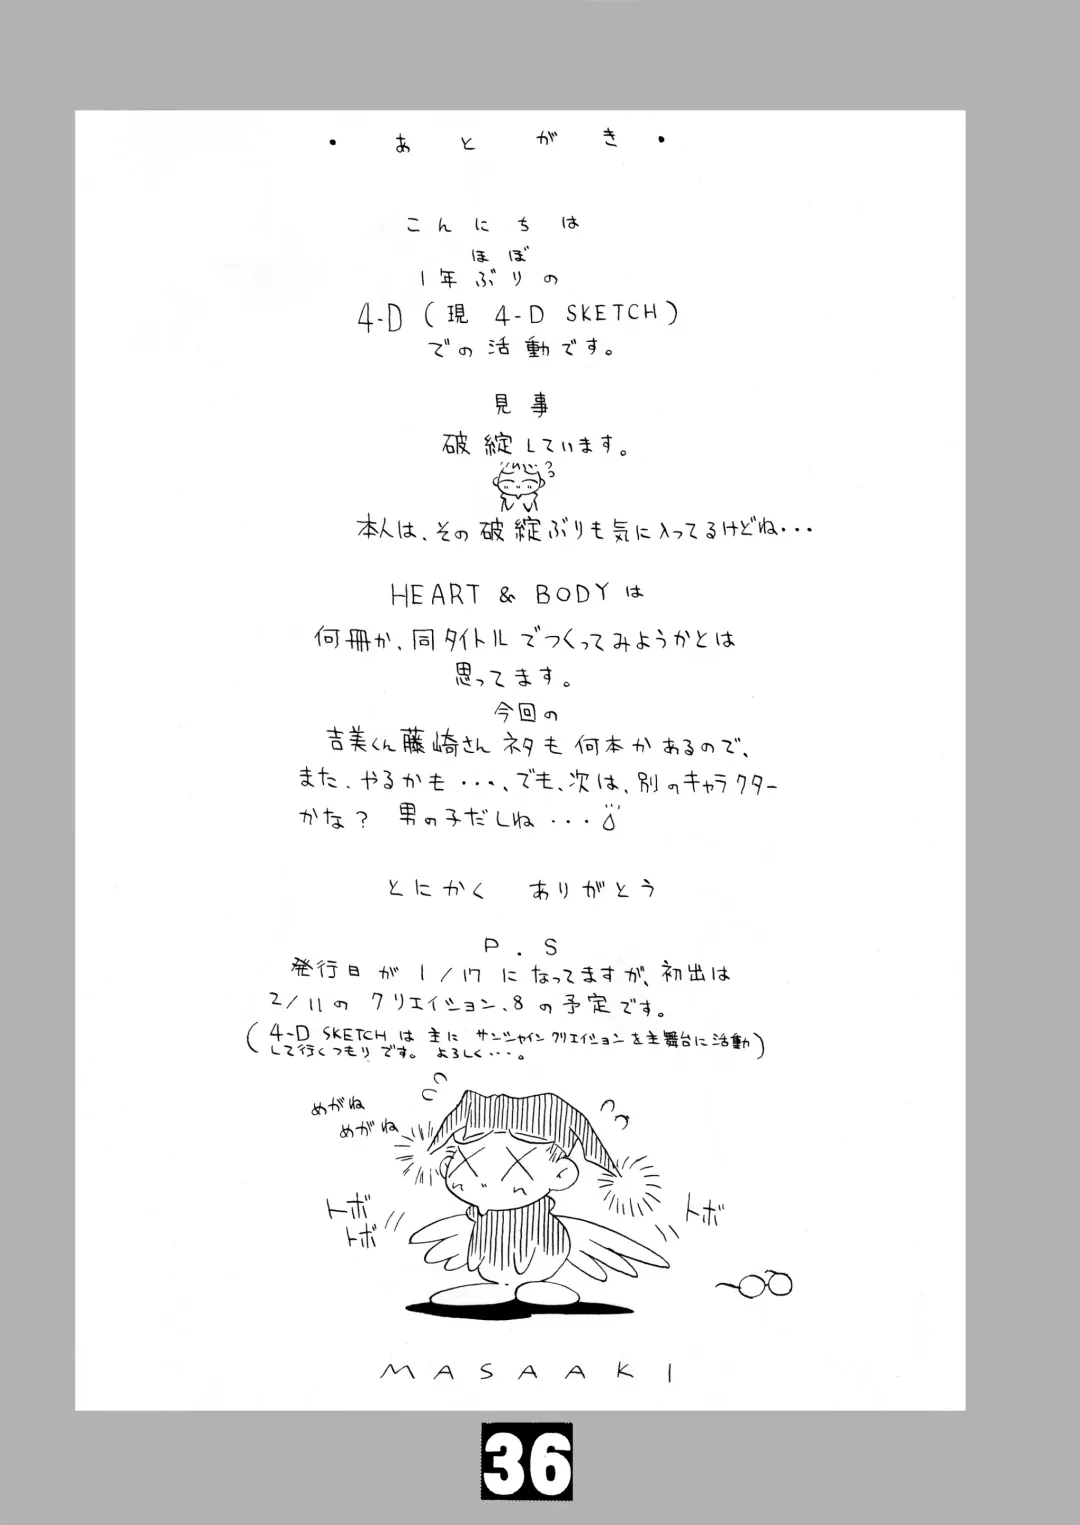 ・あとがき・
こんにちは
ほぼ
1年ぶりの
4-D(現 4-D SKETCH)
での活動です。
見事
破綻しています。
本人は、その破綻ぶりも気に入ってるけどね・・・
HEART & BODYは
何冊か、同タイトルでつくってみようかとは
思ってます。
今回の
吉美くん藤崎さんネタも何本かあるので、
また、やるかも・・・、でも、次は、別のキャラクター
かな? 男の子だしね・・・
とにかく ありがとう
P.S
発行日が1/17になってますが、初出は
2/11のクリエイション、8の予定です。
(4-D SKETCHは主にサンシャインクリエイションを主舞台に活動
して行くつもりです。よろしく・・・。)
めがね
めがね
トボ
トボ
トボ
MASAAKI
36